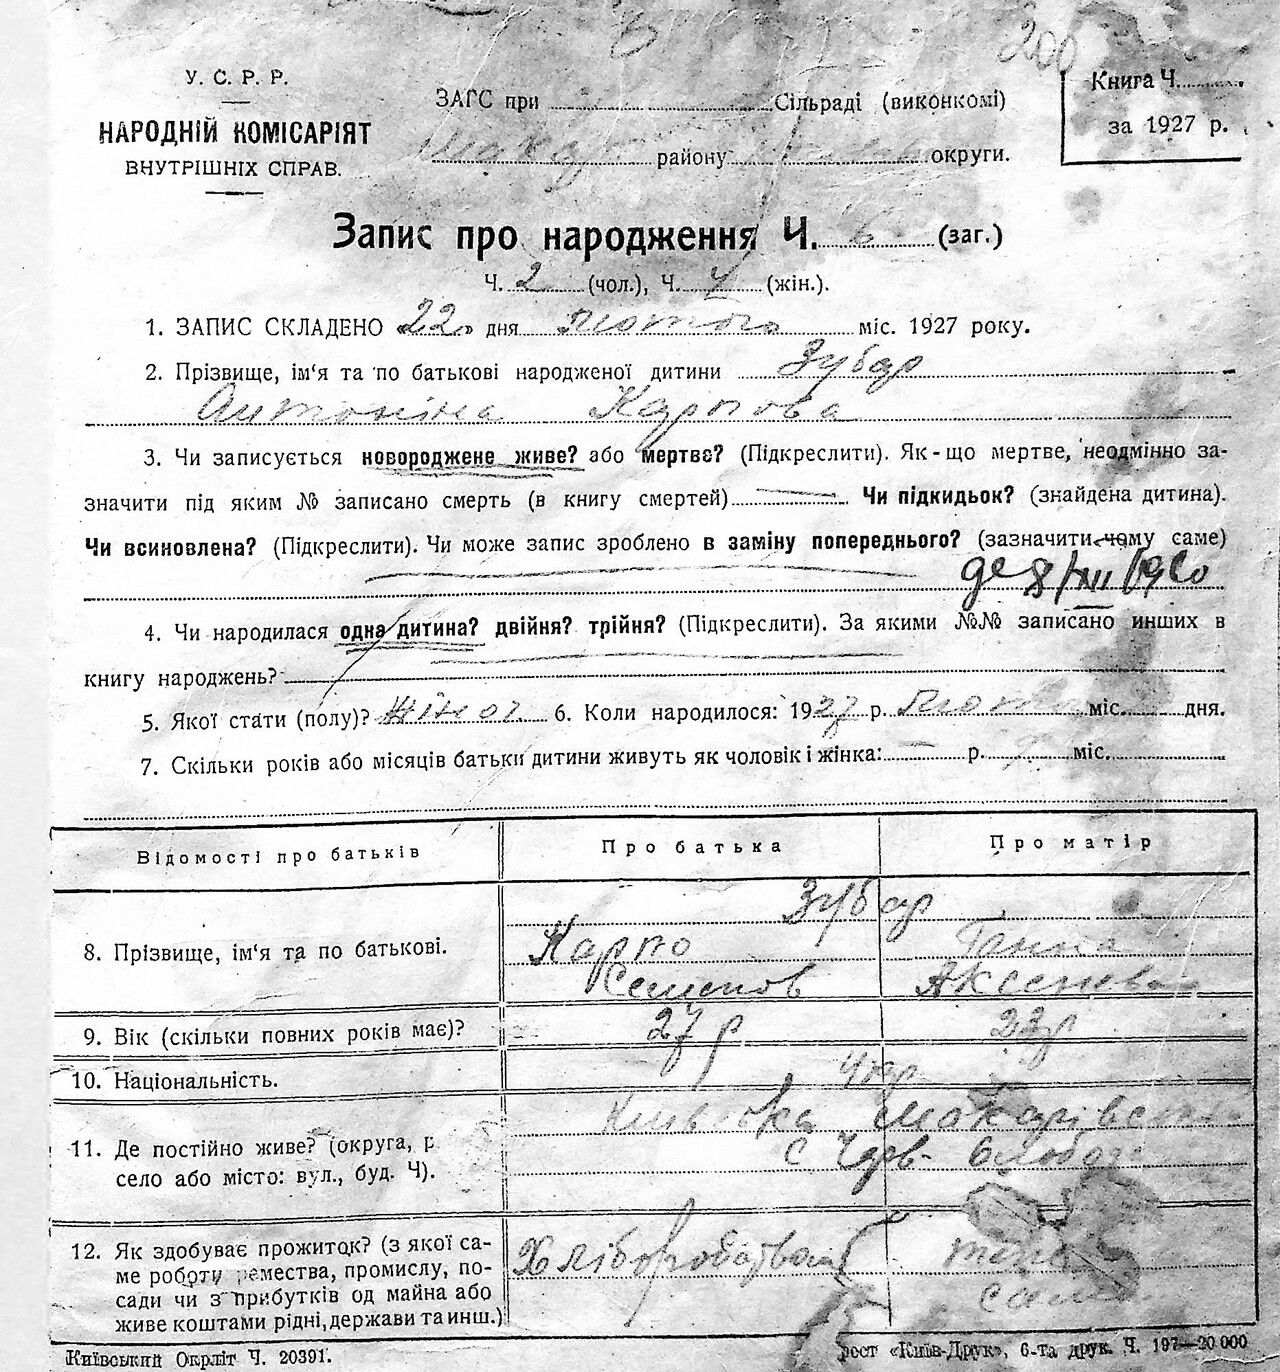 200
У. С. Р. Р.
НАРОДНІЙ КОМІСАРІЯТ
ВНУТРІШНІХ СПРАВ.
ЗАГС при Сільраді (виконкомі)
Макар району округи.
Книга Ч.
за 1927 р.
Запис про народження Ч. 6 (заг.)
Ч. 2 (чол.), Ч. 4 (жін.).
1. ЗАПИС СКЛАДЕНО «22» дня лютого міс. 1927 року.
2. Прізвище, ім‘я та по батькові народженої дитини Зубар
Антоніна Карпова
3. Чи записується новороджене живе? або мертве? (Підкреслити). Як-що мертве, неодмінно за-
значити під яким № записано смерть (в книгу смертей) Чи підкидьок? (знайдена дитина).
Чи всиновлена? (Підкреслити). Чи може запис зроблено в заміну попереднього? (зазначити чому саме)
4. Чи народилася одна дитина? двійня? трійня? (Підкреслити). За якими №№ записано инших в
книгу народжень?
5. Якої стати (полу)? жіноч 6. Коли народилося: 1927 р. Лютого міс. дня.
7. Скільки років або місяців батьки дитини живуть як чоловік і жінка: р. міс.
Відомості про батьків Про батька Про матір
Зубар
8. Прізвище, ім‘я та по батькові. Карпо Ганна
Семенов Аксенева
9. Вік (скільки повних років має)? 27 р 23р
10. Національність. Укр
Київська Макарівськ
11. Де постійно живе? (округа, р с Чорв- Слобода
село або місто: вул., буд. Ч).
12. Як здобуває прожиток? (з якої са- Хліборобством
ме роботи ремества, промислу, по-
сади чи з прибутків од майна або
живе коштами рідні, держави та инш.)
Київський Окрліт Ч. 20391.
рест «Київ-Друк», 6-та друк. Ч. 197—20.000